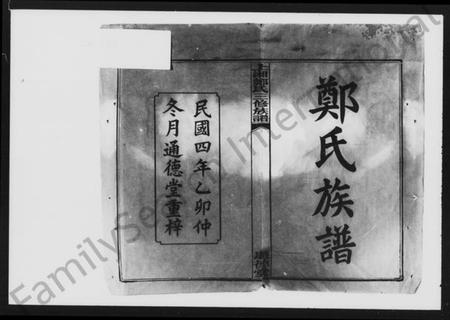 鄭氏族譜
上湘鄭氏三修族譜
民國四年乙卯仲
冬月通德堂重梓
FamilySearch International